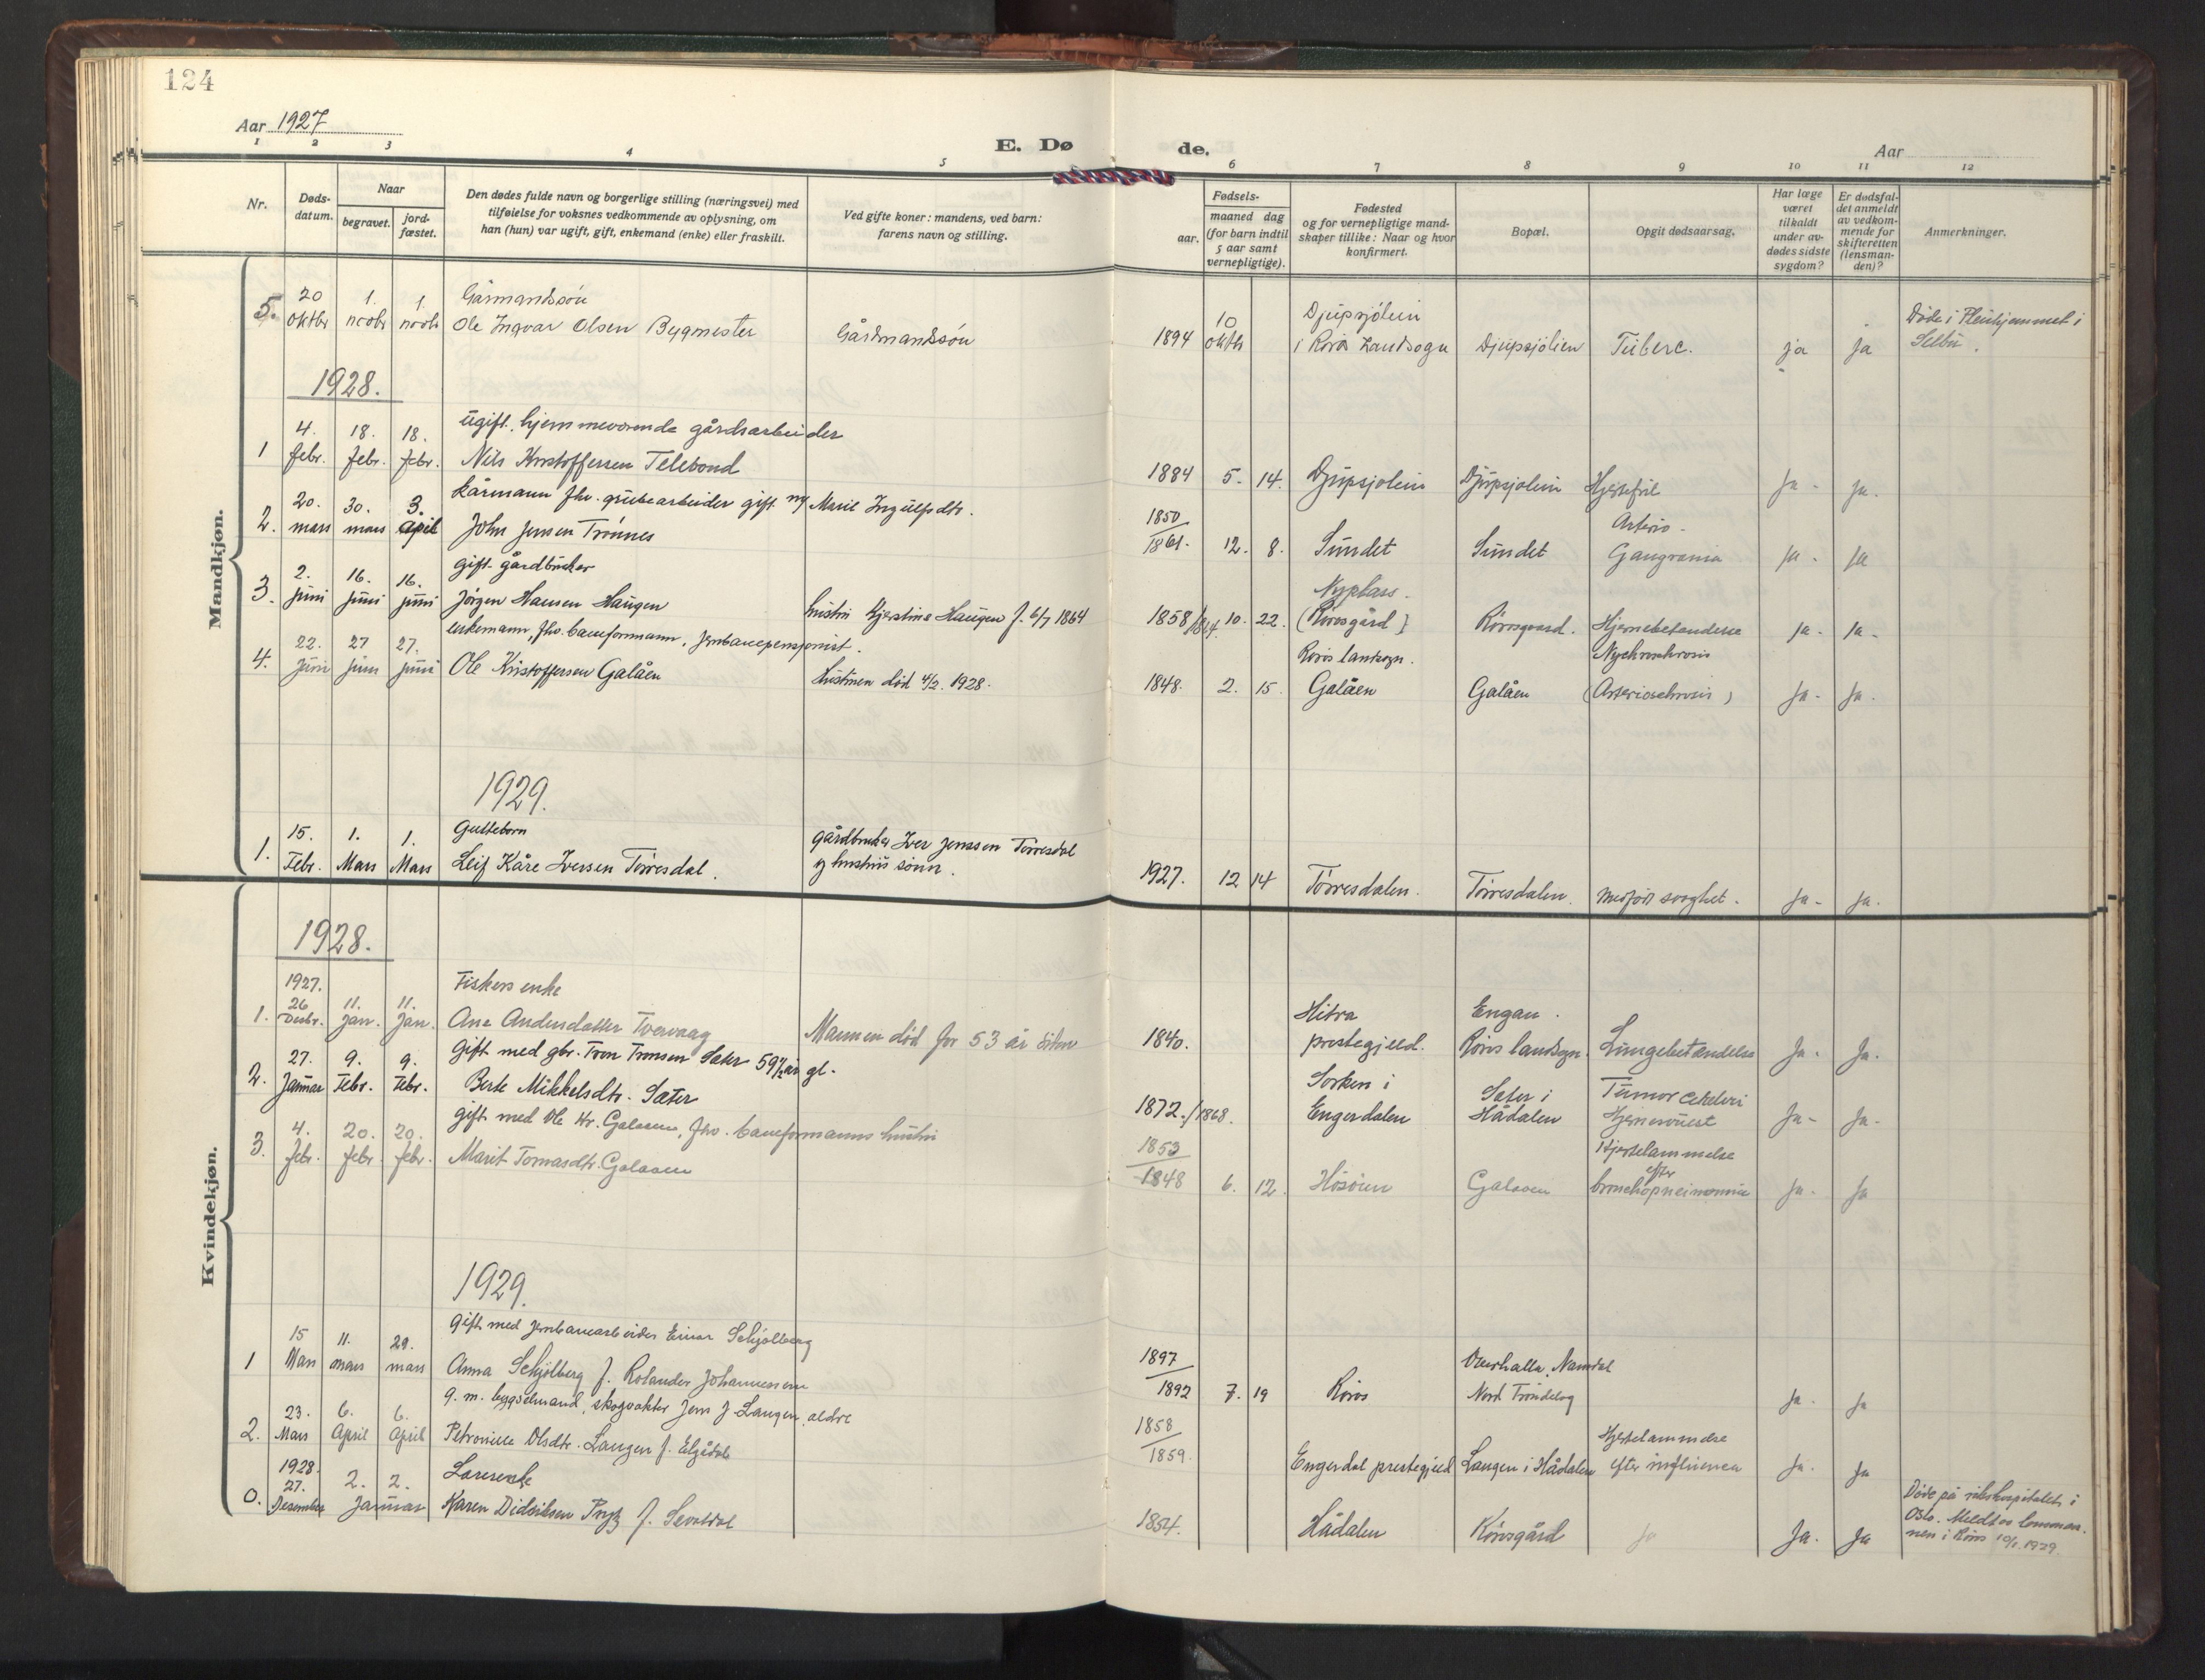 124
Aar 1927
E. Dø de.
Aar
1 2 3 4 5 6 7 8 9 10 11 12
Nr.
Døds-
datum.
Naar
begravet.
jord-
fæstet.
Den dødes fulde navn og borgerlige stilling (næringsvei) med
tilføielse for voksnes vedkommende av oplysning, om
han (hun) var ugift, gift, enkemand (enke) eller fraskilt.
Ved gifte koner: mandens, ved barn:
farens navn og stilling.
Fødsels-
aar.
maaned dag
(for barn indtil
5 aar samt
vernepligtige).
Fødested
og for vernepligtige mand-
skaper tillike: Naar og hvor
konfirmert.
Bopæl.
Opgit dødsaarsag.
Har læge
været
tilkaldt
under av-
dødes sidste
sygdom?
Er dødsfal-
det anmeldt
av vedkom-
mende for
skifteretten
(lensman-
den)?
Anmerkninger.
Mandkjøn.
20 1. 1. Gårmandssøn 10 Djupsjölien Døde i Pleiehjemmet i
5. oktbr novbr novbr Ole Ingvar Olsen Bygmester Gårdmandssøn 1894 oktbr i Röros Landsogn Djupsjölien Tuberc. ja ja Selbu.
1928.
4. 18. 18. ugift, hjemmeværende gårdsarbeider
1 febr. febr. febr. Nils Kristoffersen Telebond 1884 5. 14. Djupsjolien Djupsjolien Hjertefeil Ja - Ja.
20. 30. 3. kårmann fhv. grubearbeider gift m/ Marit Ingulfsdtr. 1850 Arterio-
2. mars mars April John Jensen Trønnes 1861. 12. 8. Sundet Sundet Gangrænia Ja - Ja
2. 16. 16. gift gårdbruker Nyplass.
3. juni juni juni Jörgen Hansen Haugen hustru Kjerstine Haugen f. 6/7 1864 1858/1864. 10. 22. (Rörosgård) Rörosgaard. Hjernebetendelse Ja - Ja -
22. 27 27. enkemann, fhv. baneformann, jernbanepensjonist. Röros landsogn.
4. juni juni juni Ole Kristoffersen Galåen hustruen död 4/2. 1928. 1848. 2. 15. Galåen Galåen (Arteriosclrosis) Ja - Ja.
1929.
15. 1. 1. Guttebarn gårdbruker Iver Jenssen Törresdal
1. Febr. Mars Mars Leif Kåre Iversen Törresdal. og hustrus sönn. 1927. 12 14 Törresdalen. Törresdalen. medfødt svaghet. Ja - Ja.
Kvindekjøn.
1928.
1927. Fiskers enke
26 11. 11. Hitra Engan.
1. Desbr. Jan. Jan. Ane Andersdatter Tvervaag Mannen död for 53 år siden 1840. prestegjeld. Röros landsogn. Lungebetændelse Ja. Ja.
27. 9. 9. Gift med gbr. Tron Tronsen Sæter 59 1/2 år gl. Sorken i Sæter i Tumor cerebri
2. Januar Febr. Febr. Berte Mikkelsdtr. Sæter 1872./1868. Engerdalen Hådalen Hjernesvulst Ja - Ja.
4. 20. 20. gift med Ole Kr. Galaaen, fhv. baneformanns hustru 1853 Hjertelammelse
3. febr. febr. febr. Marit Tomasdtr. Galaaen 1848 6. 12. Galaaen efter bronchopneumonie Ja. Ja
1929.
15 11. 29. Gift med jernbanearbeider Einar Schjölberg 1897 Overhalla, Namdal
1 Mars mars mars Anna Schjölberg f. Rolandes Johannessen 1892 7. 19 Röros Nord Tröndelag Ja. Ja
23. 6. 6. g. m. bygselmand, skogvokter Jens J. Langen, ældre 1858 Hjertelammelse
2. Mars April April Petronelle Olsdtr. Langen f. Elgådal 1859. Engerdal prestegjeld Langen i Hådalen efter influensa Ja. Ja
1928.
27. 2. 2. Døde på rikshospitalet i
0. Desember Januar Karen Didriksen Prytz f. Sevaldal 1854. Hådalen Rörosgård Ja Ja. Ja Oslo. Meldt av lensman-
nen i Röros 10/1. 1929.